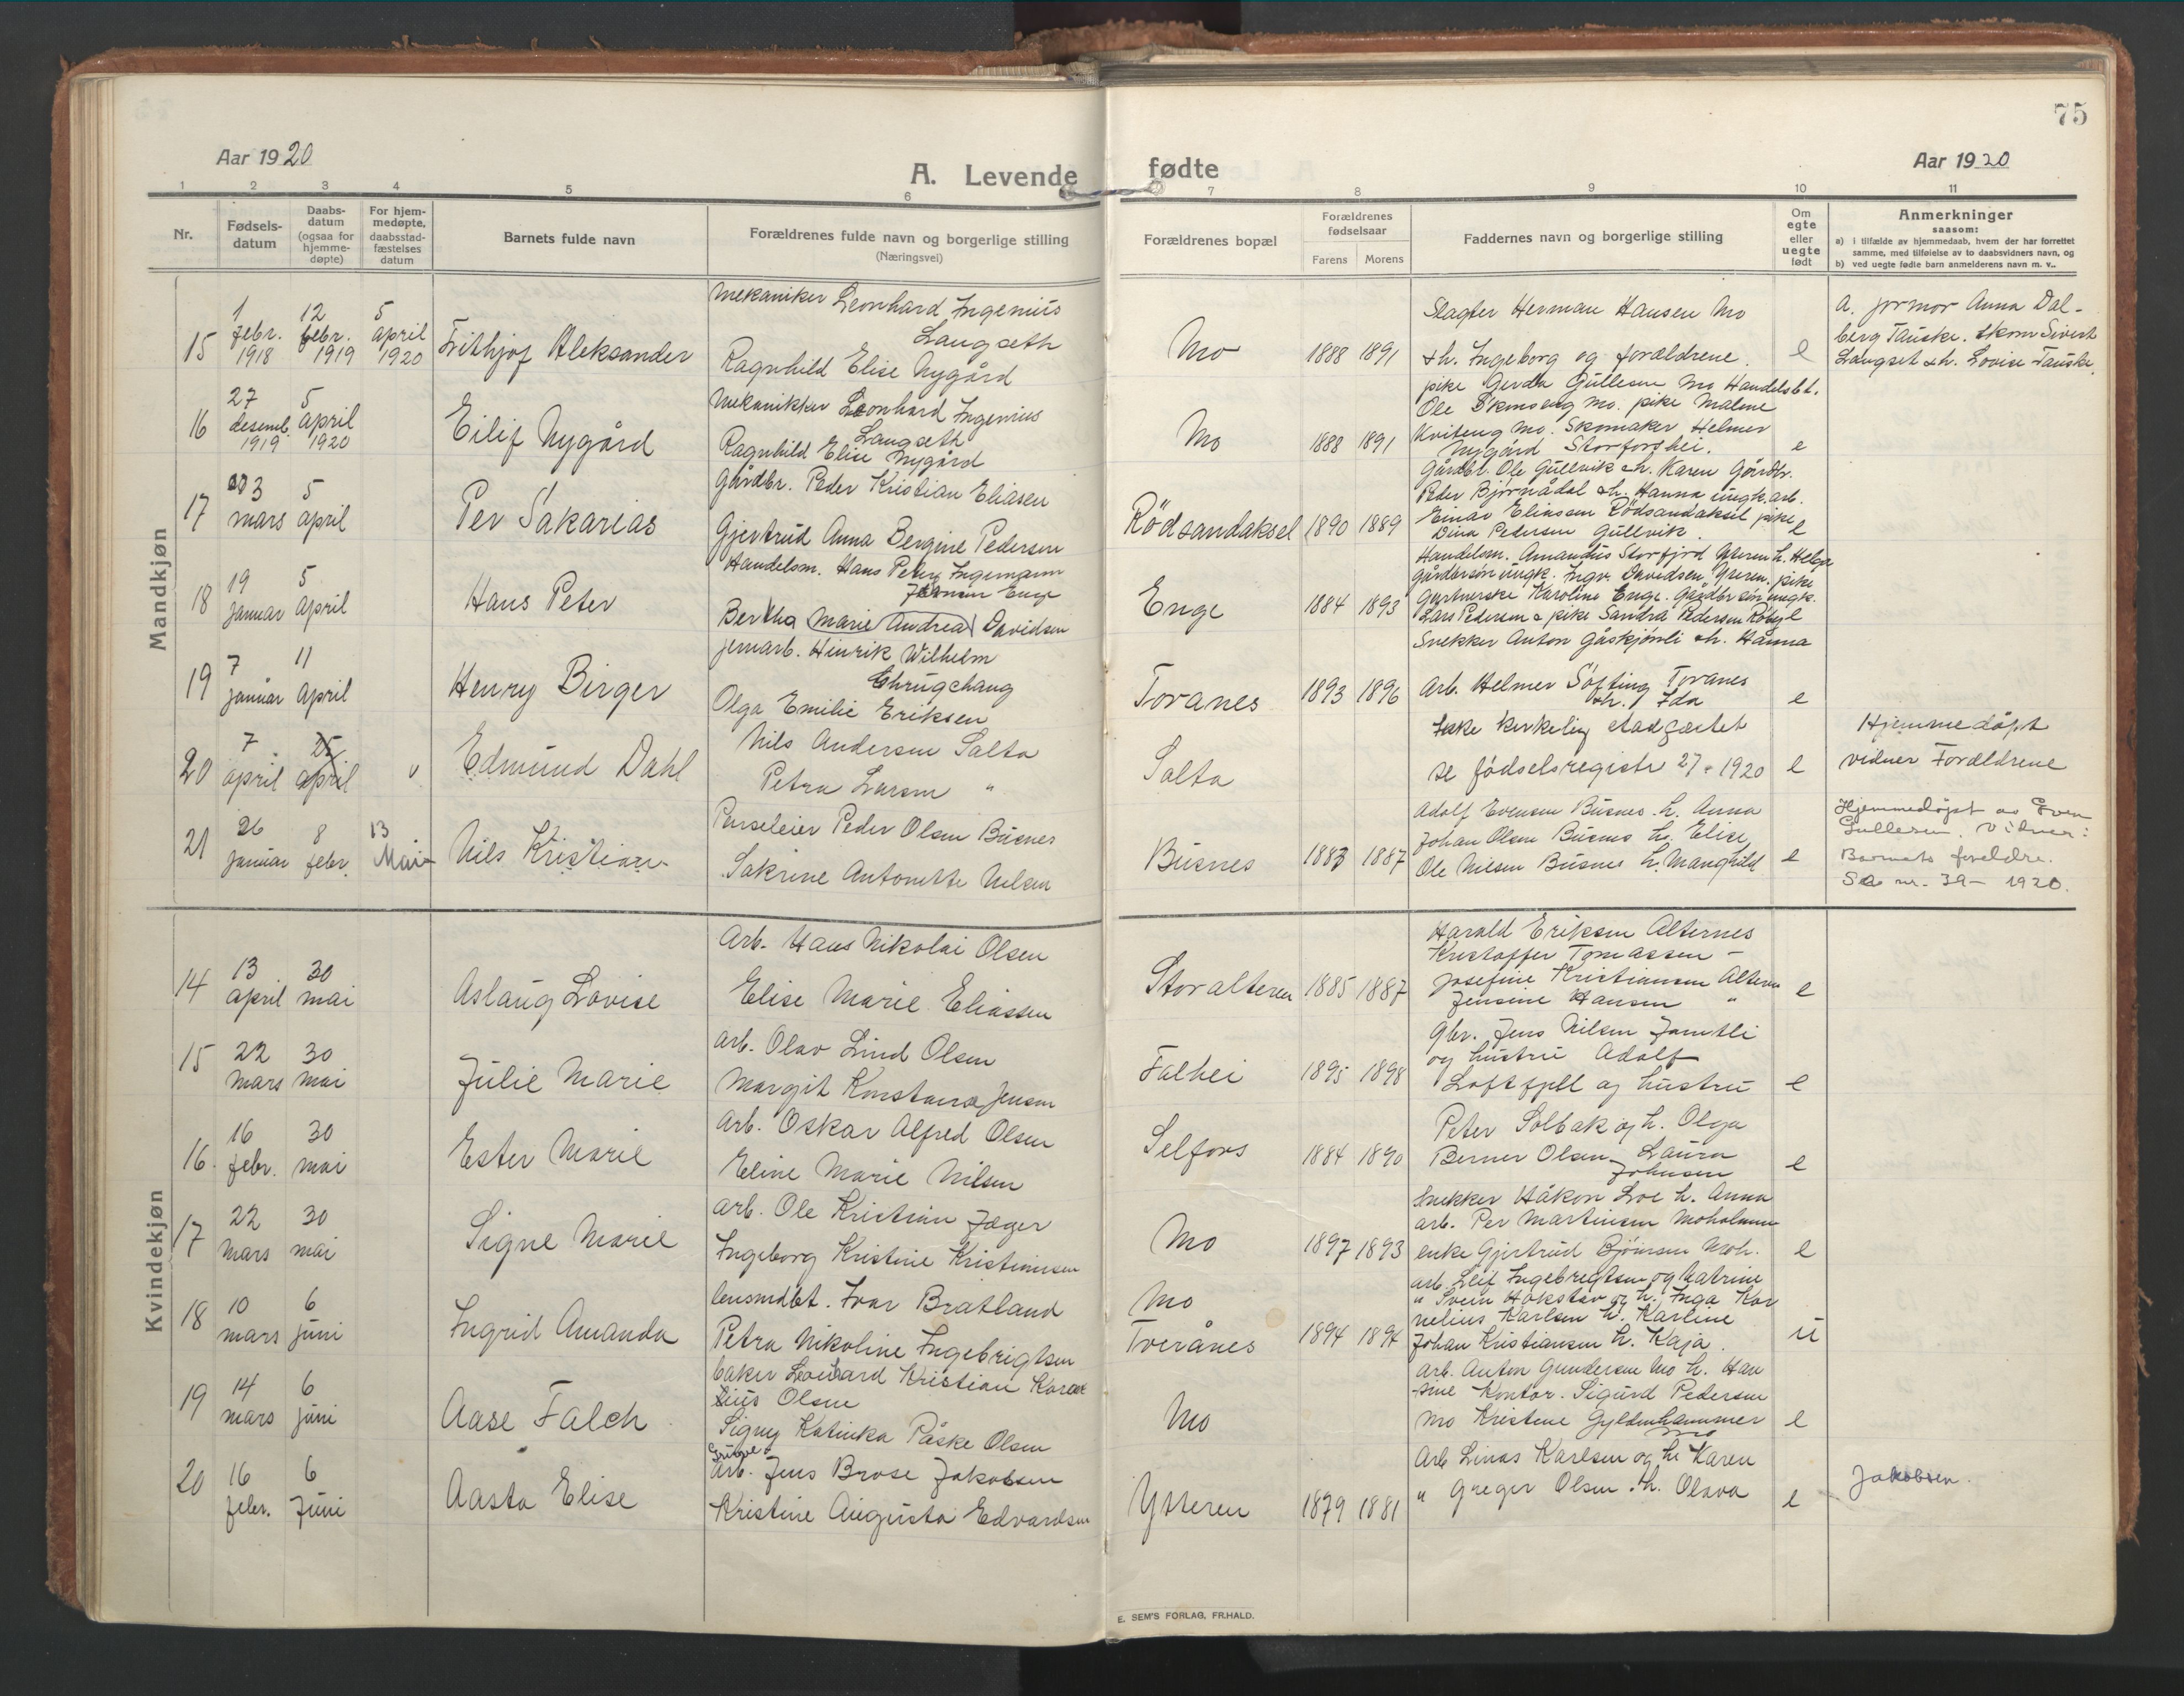 75
Aar 1920
A. Levende fødte
Aar 1920
1 2 3 4 5 6 7 8 9 10 11
Nr.
Fødsels-
datum
Daabs-
datum
(ogsaa for
hjemme-
døpte)
For hjem-
medøpte,
daabsstad-
fæstelses
datum
Barnets fulde navn
Forældrenes fulde navn og borgerlige stilling
(Næringsvei)
Forældrenes bopæl
Forældrenes
fødselsaar
Farens Morens
Faddernes navn og borgerlige stilling
Om
egte
eller
uegte
født
Anmerkninger
saasom:
a) i tilfælde av hjemmedaab, hvem der har forrettet
samme, med tilføielse av to daabsvidners navn, og
b) ved uegte fødte barn anmelderens navn m. v..
Mandkjøn
15
1 febr. 1918
12 febr. 1919
5 april 1920
Frithjof Aleksander
Mekaniker Leonhard Ingenius
Langseth
Ragnhild Elise Nygård
Mo
1888 1891
Slagter Herman Hansen Mo
& h. Ingeborg og forældrene.
e
a. jormor Anna Dal-
berg Tauske. Skom Sivert
Langset & h. Lovise Tauske.
16
27 desemb. 1919
5 april 1920
Eilif Nygård
Mekanikker Leonhard Ingenius
Langseth
Ragnhild Elise Nygård
Mo
1888 1891
pike Gerda Gullesen Mo Handelsbt.
Ole Skonseng Mo. pike Malene
Kviteng Mo. Skomaker Helmer
Nygård Storforshei.
e
17
3 mars
5 april
Per Sakarias
Gårdbr. Peder Kristian Eliasen
Gjertrud Anna Bergine Pedersen
Rödsandaksel
1890 1889
Gårdbr. Ole Gullvik & h. Karen Gårdbr.
Peder Bjørnådal & h. Hanna ungk. arb.
Einar Eliassen Rödsandaksel pike
Dina Pedersen Gullvik.
e
18
19 januar
5 april
Hans Peter
Handelsm. Hans Peter Ingemann
Jensen Enge
Bertha Marie Andrea Davidsen
Enge
1884 1893
Handelsm. Amandus Storfjord Ytteren h. Helga
gårdbrsön ungk. Ingv. Davidsen, Ytteren. pike
Gartnerske Karoline Enge. Gårdbr sön ungk.
Lars Pedersen & pike Sandra Pedersen Röberg
e
19
7 januar
11 april
Henry Birger
jernarb. Hinrik Wilhelm
Chrugchang
Olga Emilie Eriksen
Toranes
1893 1896
Snekker Anton Gåskjønli & h. Hanna
Arb. Helmer Söfting Toranes
& h. Ida
e
20
7 april
25 april
v
Edmund Dahl
Nils Andersen Salta
Petra Larsen "
Salta
Ikke kirkelig stadfæstet
se fødselsregistr 27 - 1920
e
Hjemmedöpt
vidner Forældrene
21
26 januar
8 febr.
13 Mai
Nils Kristian
Parseleier Peder Olsen Busnes
Sakrine Antonette Nilsen
Busnes
1883 1887
Adolf Evensen Busnes. h. Anna
Johan Olsen Busnes h. Elise
Ole Nilsen Busnes h. Manghild
e
Hjemmedöpt av Even
Gullesen. Vidner:
Barnets foreldre.
Se nr. 39 - 1920.
Kvindekjøn
14
13 april
30 mai
Aslaug Lovise
Arb. Hans Nikolai Olsen
Elise Marie Eliassen
Storalteren
1885 1887
Harald Eriksen Alternes
Kristoffer Tomassen -
Josefine Kristiansen Altern
Jensine Hansen "
e
15
22 mars
30 mai
Julie Marie
Arb. Olav Lind Olsen
Margit Konstanse Jensen
Falhei
1895 1898
Gbr. Jens Nilsen Jamtli
og hustru Adolf
Loftfjell og hustru
e
16.
16 febr.
30 mai
Ester Marie
Arb. Oskar Alfred Olsen
Eline Marie Nilsen
Selfors
1884 1890
Peter Solbak og h. Olga
Berner Olsen Laura
Johnsen
e
17
22 mars
30 mai
Signe Marie
Arb. Ole Kristian Jæger
Ingeborg Kristine Kristiansen
Mo
1897 1893
Snekker Håkon Loe h. Anna
arb. Per Martinsen Moholmen
enke Gjertrud Björnsen Moh.
e
18
10 mars
6 juni
Ingrid Amanda
lensmdbt. Ivar Bratland
Petra Nikoline Ingebrigtsen
Mo
Tverånes
1894 1894
arb. Leif Ingebregtsen og Katrine
" Svein Hakstav og h. Inga Kor
nelius Karlsen h. Karline
Johan Kristiansen h. Kaja.
u
19
14 mars
6 juni
Aase Falch
baker Leonhard Kristian Korne
lius Olsen
Signy Katinka Påske Olsen
Mo
Arb. Anton Gundersen Mo h. Han
sine Kontor. Sigurd Pedersen
Mo Kristine Gyldenhammer
Mo
e
20
16 febr.
6 juni
Aasta Elise
Grube
arb. Jens Brose Jakobsen
Kristine Augusta Edvardsen
Ytteren
1879 1881
Arb Linas Karlsen og h. Karen
" Greger Olsen & h. Olava
e
Jakobsen.
E. SEM'S FORLAG, FR.HALD.